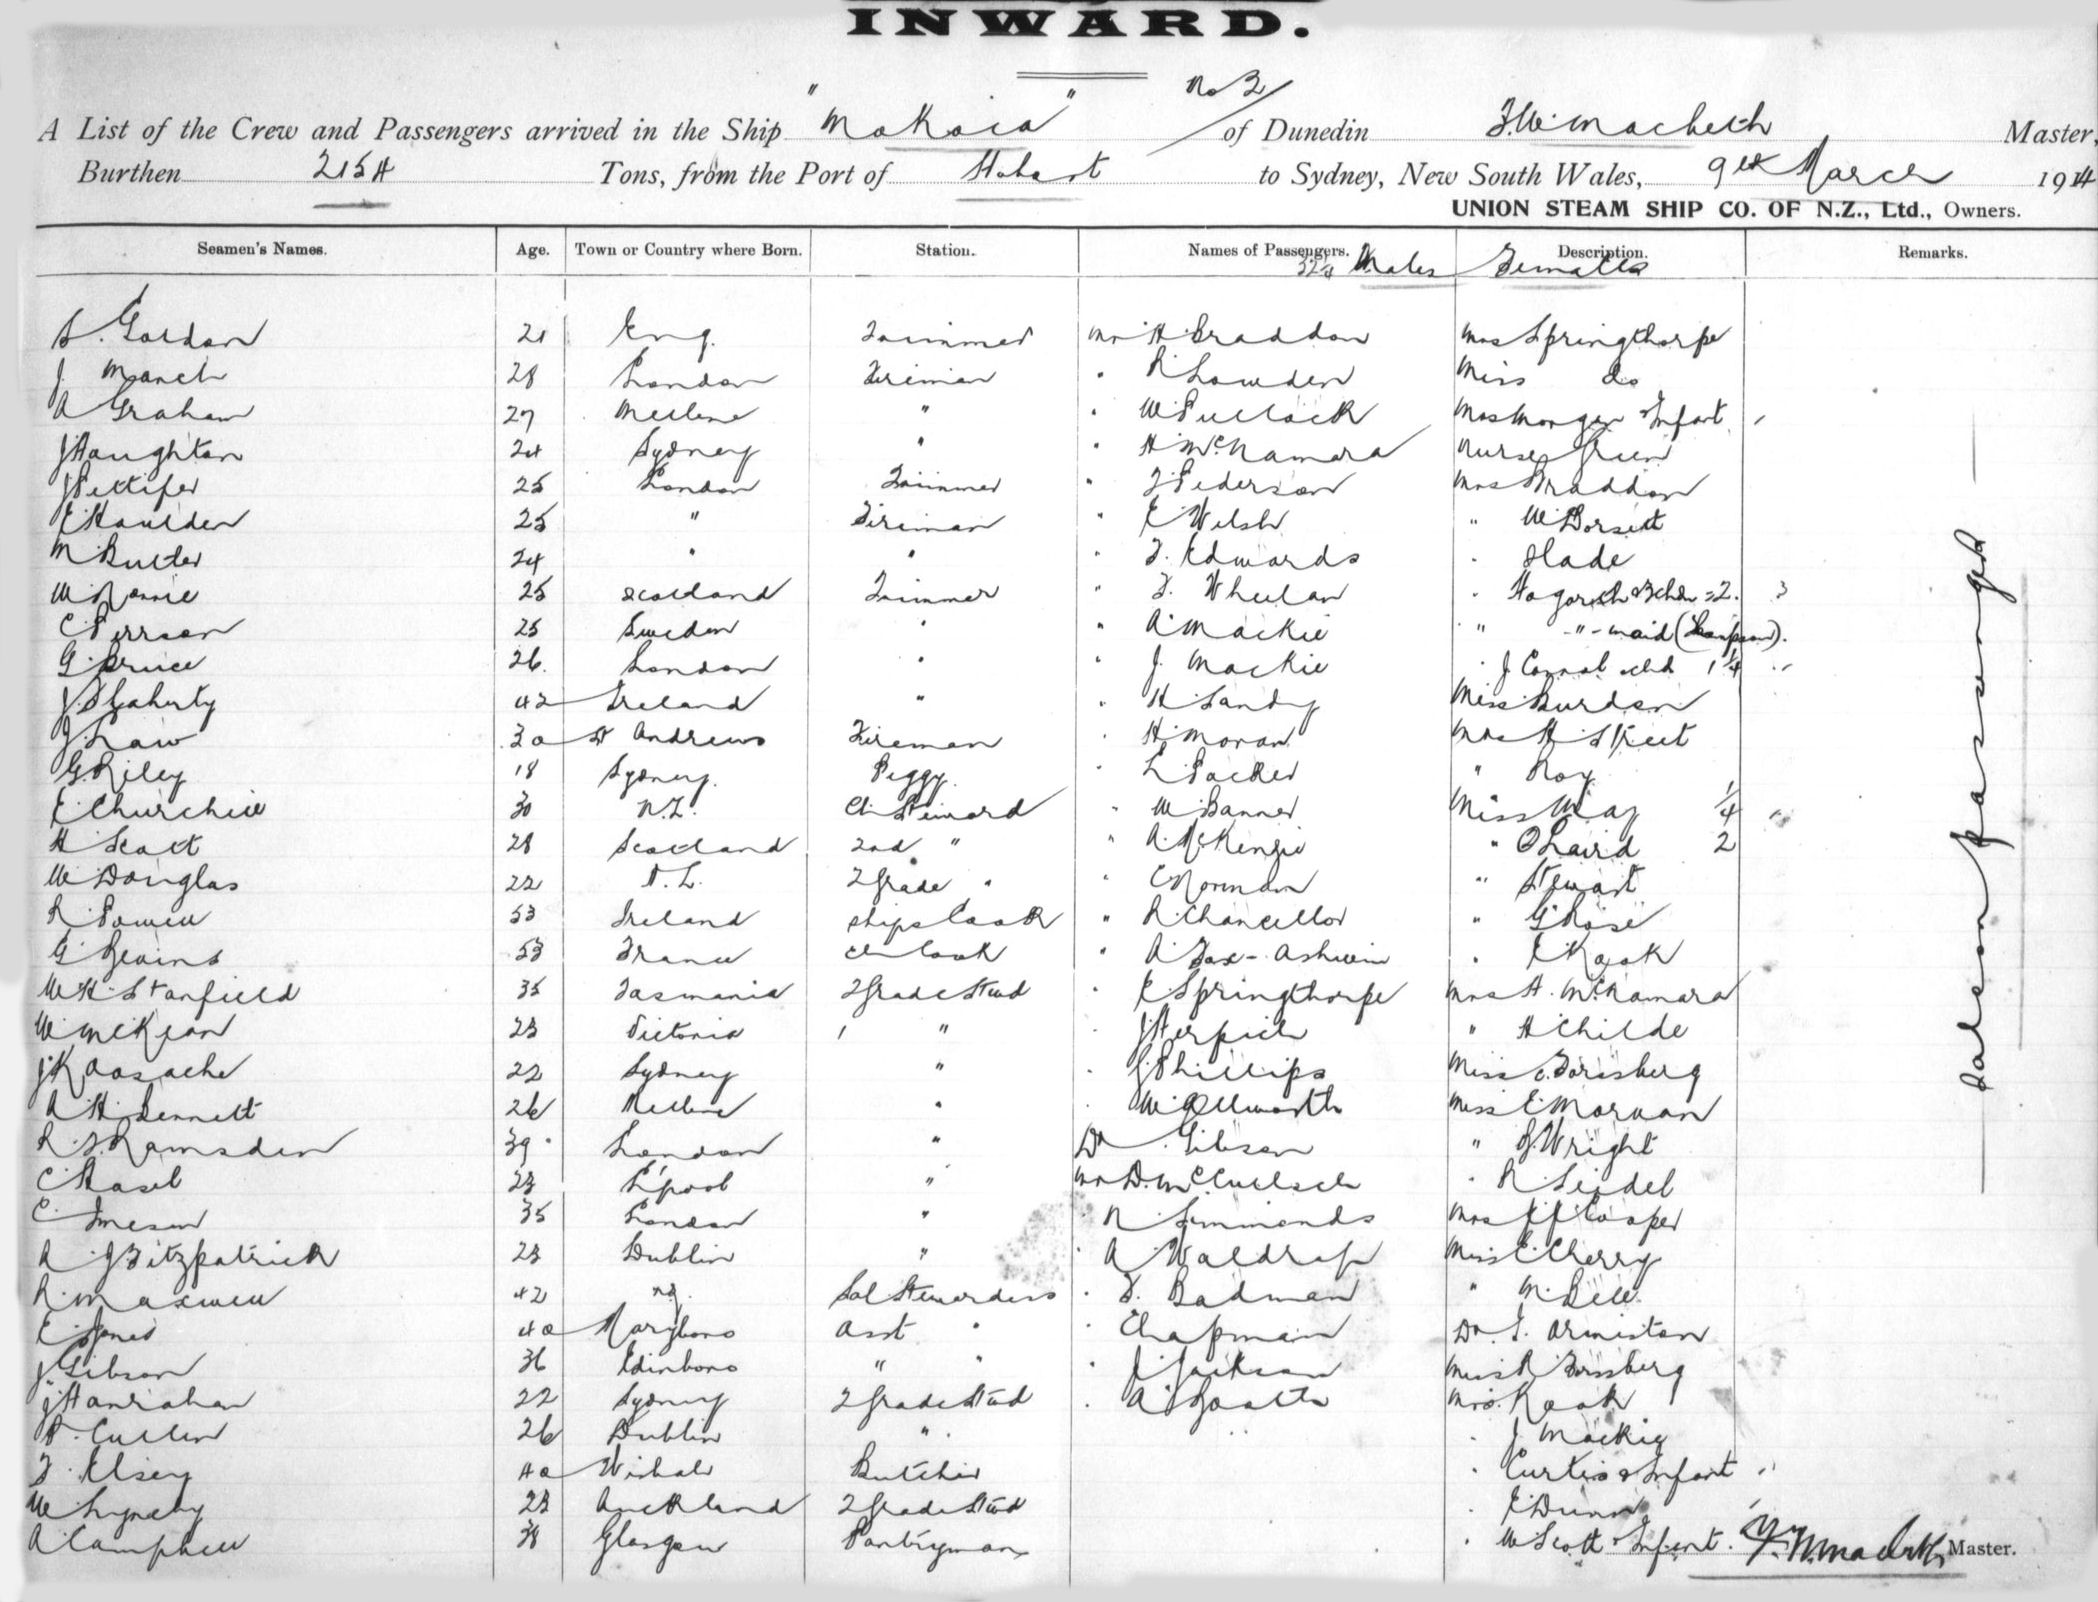 INWARD.
No 2
A List of the Crew and Passengers arrived in the Ship "Mokoia" of Dunedin F.W. Macbeth Master,
Burthen 2154 Tons, from the Port of Hobart to Sydney, New South Wales, 9th March 1914
UNION STEAM SHIP CO. OF N.Z., Ltd., Owners.
Seamen's Names. Age. Town or Country where Born. Station. Names of Passengers. Description. Remarks.
Males Females
S. Gordon 21 Eng. Trimmer Mr H Braddon Mrs Springthorpe
J March 28 London Fireman " R Lowden Miss do
A Graham 27 Melbne " " W Pullock Mrs Morgan & Infant
J Haughton 24 Sydney " " H McNamara Nurse Green
J Pettifer 25 London Trimmer " F Pederson Mrs Braddon
E Houlden 25 " Fireman " E Welsh " W Dorsett
M Butler 24 " " " F. Edwards " Slade
W Rennie 25 Scotland Trimmer " F. Wheelan " Hogarth & 3 chdn = 2. 3
C Perrson 25 Sweden " " A Mackie " " - maid (Thompson).
G Bruce 26. London " " J Mackie " J Connol & chd 1 1/4
J Flaherty 42 Ireland " " H Landy Miss Burden
J Law 30 St Andrews Fireman " H Moran Mrs H Street
G. Riley 18 Sydney. Peggy. " L Packer " Roy
E Churchill 30 N.Z. Ch Steward " W Banner Miss May 1/4
H Scott 28 Scotland 2nd " " A McKenzie " O Laird 2
W Douglas 22 N.Z. 2 Grade " " C Norman " Stewart
R Powell 53 Ireland Ships Cook " R Chancellor " G Rose
G Bevins 53 France Ch Cook " A Fox-Ashwin " E Kook
W H Stanfield 35 Tasmania 2 Grade Stwd " E Springthorpe Mrs H. McNamara
W McKean 23 Victoria " " J Herpich " H Childe
J Kaasache 22 Sydney " " J Phillips Miss C. Forssberg
A H Bennett 26 Melbne " " W Allworth Miss E Morvan
R. S. Ramsden 39 London " Dr Gibson " J. Wright
C Hasel 23 L'pool " Mr D. McCulloch " R Seidel
C. Imeson 35 London " " N Simmonds Mrs J J Cooper
A J Fitzpatrick 23 Dublin " " A Waldrop Miss E Cherry
R. Maxwell 42 Sal Stewardess " F. Badman " M. Bell
E Jones 40 Maryboro Asst " " Chapman Dr. I. Ormiston
J. Gibson 36 Edinboro " " " J Jackson Miss R Forssberg
J Hanrahan 22 Sydney 2 Grade Stwd " A Booth Mrs. Kook
P. Cullen 26 Dublin " " J Mackie
F. Elsey 40 Butcher " Curtis & Infant
W Lynchy 23 Auckland 2 Grade Stwd " E Dunn
A Campbell 38 Glasgow Pantryman " W Scott & Infant.
Saloon passengers
F. W. Macbeth Master.